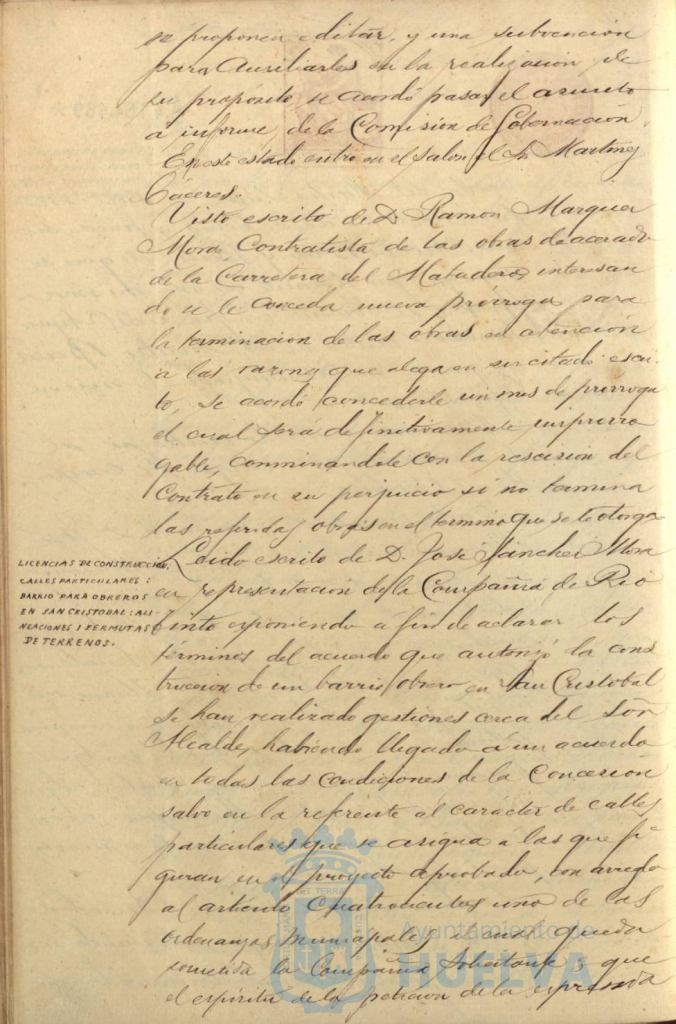 se proponen editar, y una subvención
para Auxiliarles en la realización de
su propósito, se acordó pasar el asunto
a informe de la Comisión de Gobernación.
En este estado entró en el salon el Sr Martinez
Cáceres.
Visto escrito de D. Ramon Marquez
Mora, Contratista de las obras de acerado
de la Carretera del Matadero, interesan
do se le conceda nueva prórroga para
la terminacion de las obras en atención
á las razones que alega en su citado escri-
to, se acordó concederle un mes de prorroga
el cual será definitivamente improrro
gable, conminandole con la rescision del
Contrato en su perjuicio si no termina
las referidas obras en el termino que se le otorga
LICENCIAS DE CONSTRUCCION,
CALLES PARTICULARES:
BARRIO PARA OBREROS
EN SAN CRISTOBAL: ALI-
NEACIONES I FERMUTAS
DE TERRENOS.
Leido escrito de D. José Sánchez Mora
en representación de la Compañía de Rio
Tinto exponiendo á fin de aclarar los
términos del acuerdo que autorizó la cons
truccion de un barrio obrero en San Cristobal
se han realizado gestiones cerca del Sor
Alcalde, habiendo llegado á un acuerdo
en todas las condiciones de la Concesión
salvo en la referente al caracter de calles
particulares que se asigna á las que fi-
guran en el proyecto aprobado, con arreglo
al artículo Cuatrocientos uno de las
Ordenanzas Municipales á cual queda
sometida la Compañia Solicitante y que
el espíritu de la peticion de la expresada
Ayuntamiento de
HUELVA